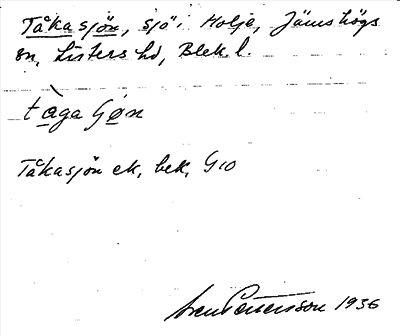 Tåkasjön, sjö i Holje, Jämshögs
sn, Listers hd, Blek. l.
tàga sjön
Tåkasjön ek, bek, G10
Sven Pettersson 1936